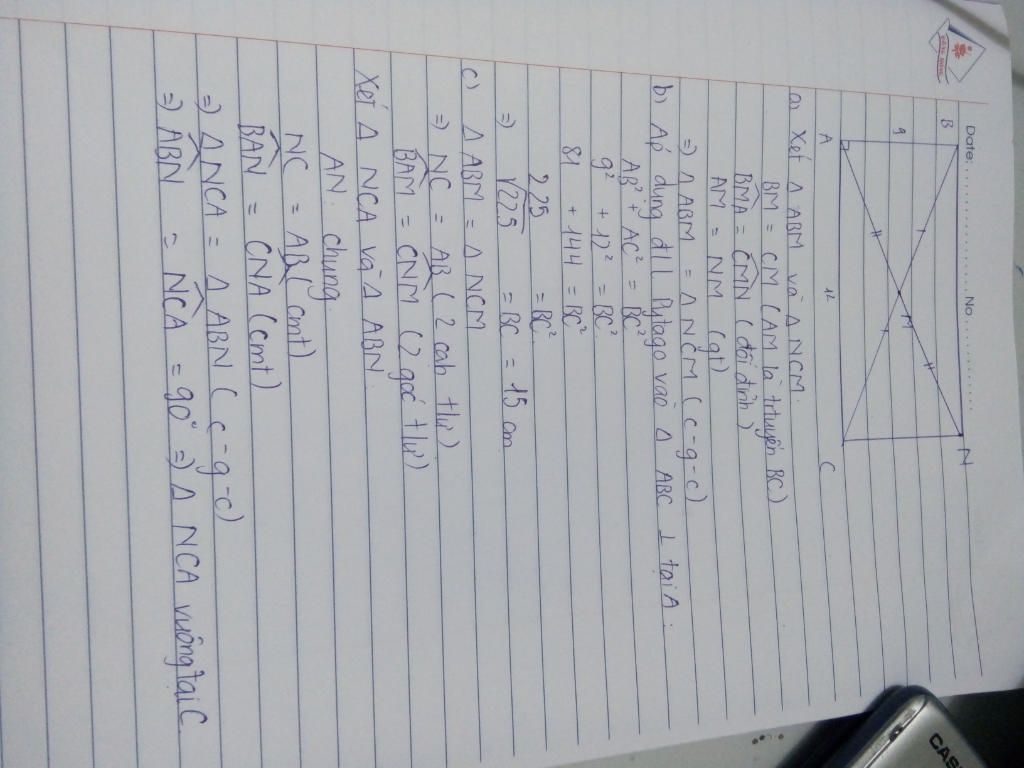 Date: ..................... No. ..................
B
N
9
M
A
12
C
a) Xét Δ ABM và Δ NCM.
BM = CM (AM là t tuyến BC)
BMA = CMN (đối đỉnh)
AM = NM (gt)
=) Δ ABM = Δ NCM (c-g-c)
b) Áp dụng đ l Pytago vào Δ ABC ⊥ tại A.
AB² + AC² = BC²
9² + 12² = BC²
81 + 144 = BC²
225 = BC²
=) √225 = BC = 15 cm
c) Δ ABM = Δ NCM
=) NC = AB (2 cah tư)
BAM = CNM (2 góc tư)
Xét Δ NCA và Δ ABN.
AN chung
NC = AB (cmt)
BAN = CNA (cmt)
=) Δ NCA = Δ ABN (c-g-c)
=) ABN = NCA = 90° =) Δ NCA vuông tại C.
CAS